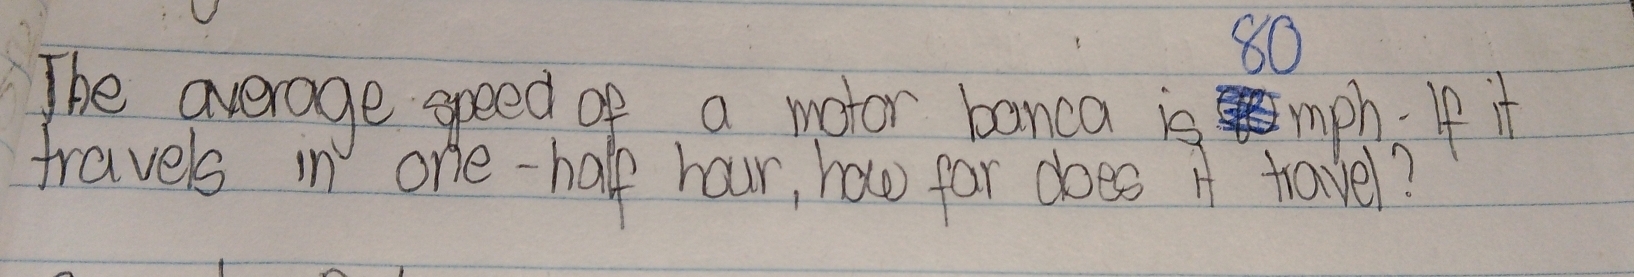 80
The average speed of a motor banca is mph. If it
travels in one-half hour, how far does it travel?